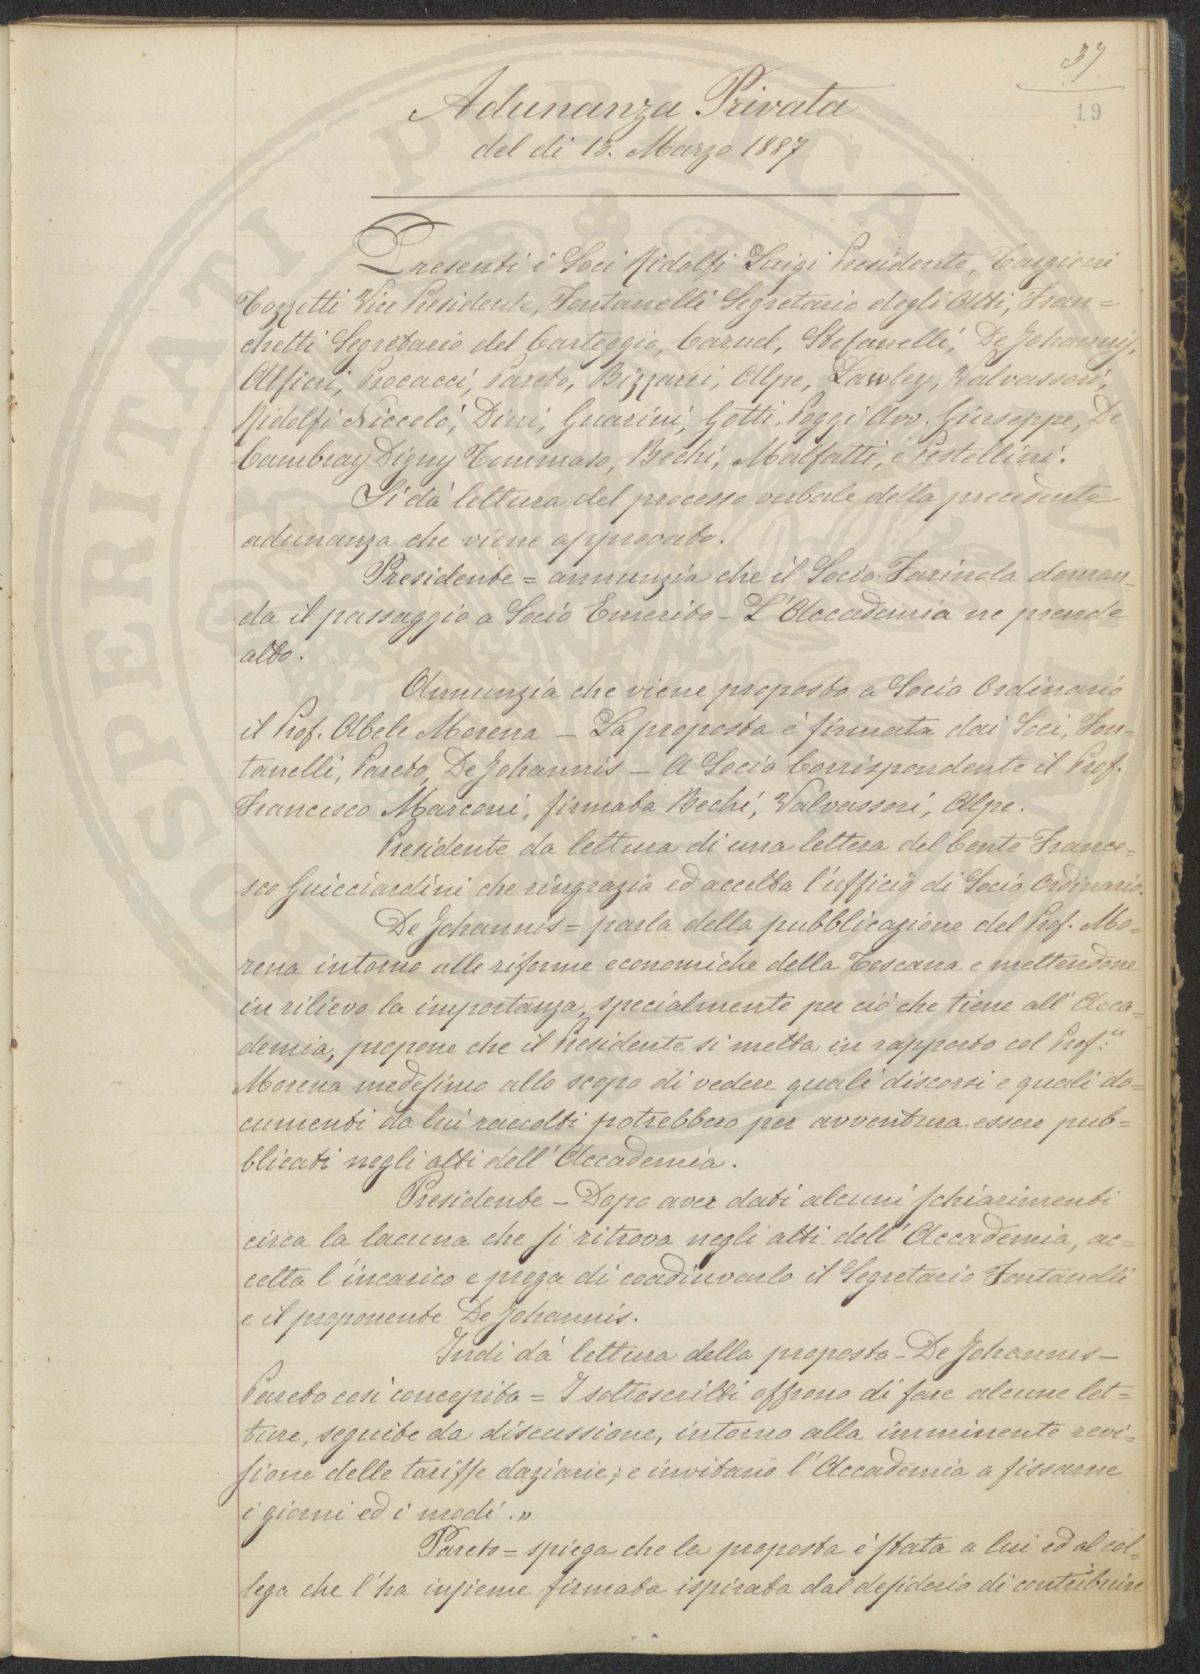 37
19
Adunanza Privata
del di 13. Marzo 1887
Presenti i Soci Ridolfi Luigi Presidente, Targioni
Tozzetti Vice Presidente, Fontanelli Segretario degli Atti, Fran=
chetti Segretario del Carteggio, Caruel, Stefanelli, De Johannis,
Alfieri, Procacci, Pareto, Bizzarri, Alpe, Lawley, Valvassori,
Ridolfi Niccolò, Dini, Guarini, Gotti, Poggi Avv. Giuseppe, De
Cambray Digny Tommaso, Bechi, Malfatti, e Pestellini.
Si dà lettura del processo verbale della precedente
adunanza che viene approvato.
Presidente = annunzia che il Socio Farinola doman=
da il passaggio a Socio Emerito - L'Accademia ne prende
atto.
Annunzia che viene proposto a Socio Ordinario
il Prof. Abele Morena - La proposta è firmata dai Soci, Fon=
tanelli, Pareto, De Johannis - A Socio Corrispondente il Prof.
Francesco Marconi, firmata Bechi, Valvassori, Alpe.
Presidente da lettura di una lettera del Conte France=
sco Guicciardini che ringrazia ed accetta l'ufficio di Socio Ordinario.
De Johannis = parla della pubblicazione del Prof. Mo=
rena intorno alle riforme economiche della Toscana e mettendone
in rilievo la importanza, specialmente per ciò che tiene all'Acca=
demia, propone che il Presidente si metta in rapporto col Prof.
Morena medesimo allo scopo di vedere quali discorsi e quali do=
cumenti da lui raccolti potrebbero per avventura essere pub=
blicati negli atti dell'Accademia.
Presidente - Dopo aver dati alcuni schiarimenti
circa la lacuna che si ritrova negli atti dell'Accademia, ac=
cetta l'incarico e prega di coadiuvarlo il Segretario Fontanelli
e il proponente De Johannis.
Indi dà lettura della proposta - De Johannis -
Pareto così concepita = I sottoscritti offrono di fare alcune let=
ture, seguite da discussione, intorno alla imminente revi=
sione delle tariffe daziarie; e invitano l'Accademia a fissarne
i giorni ed i modi."
Pareto = spiega che la proposta è stata a lui ed al col=
lega che l'ha insieme firmata ispirata dal desiderio di contribuire